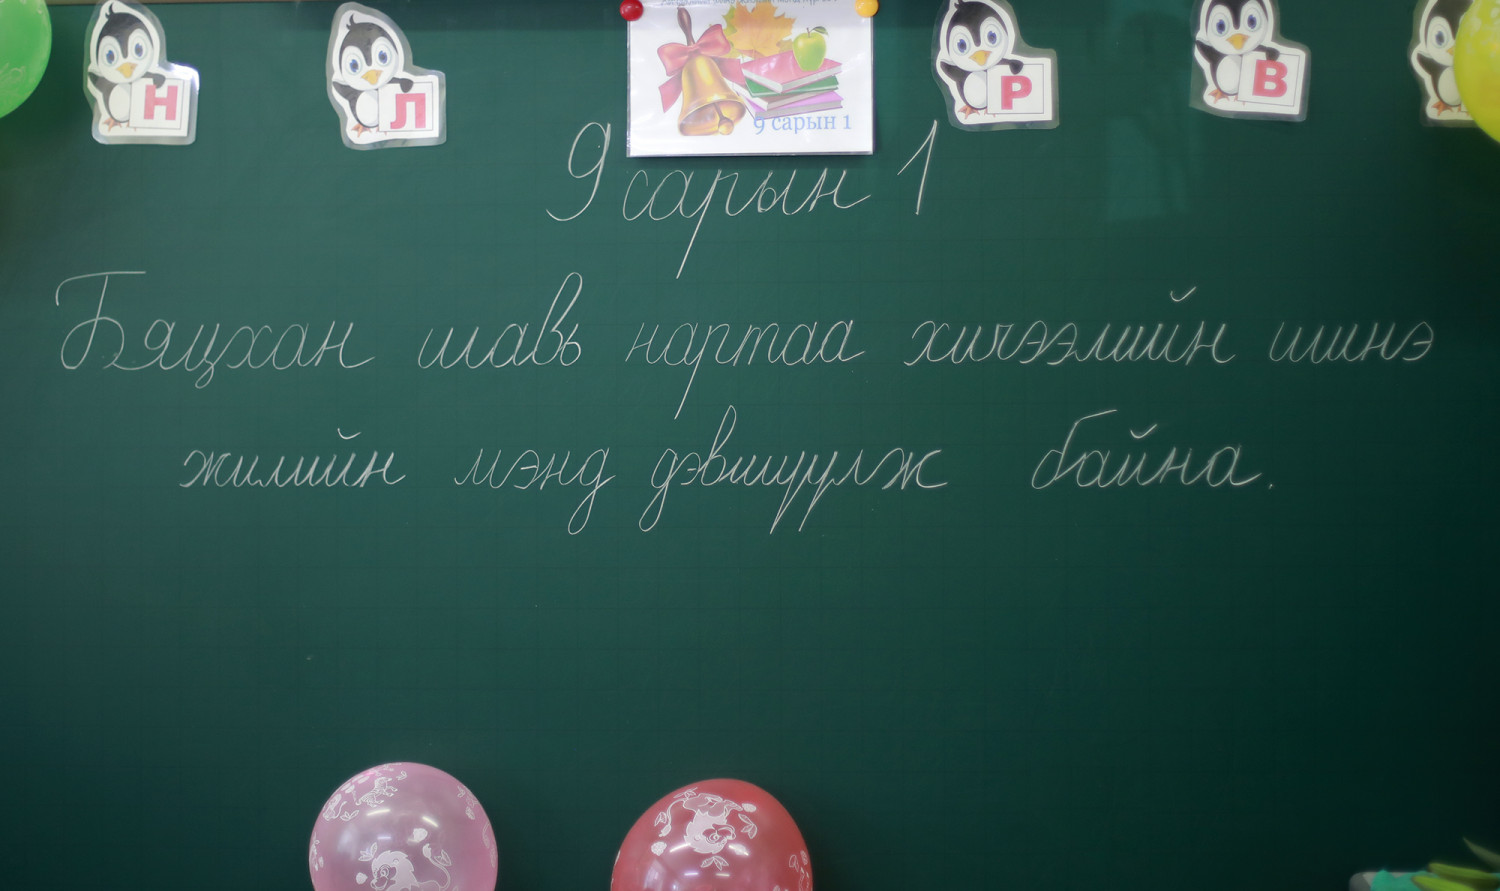 Н Л Р В
9 сарын 1
9 сарын 1
Бяцхан шавь нартаа хичээлийн шинэ
жилийн мэнд дэвшүүлж байна.